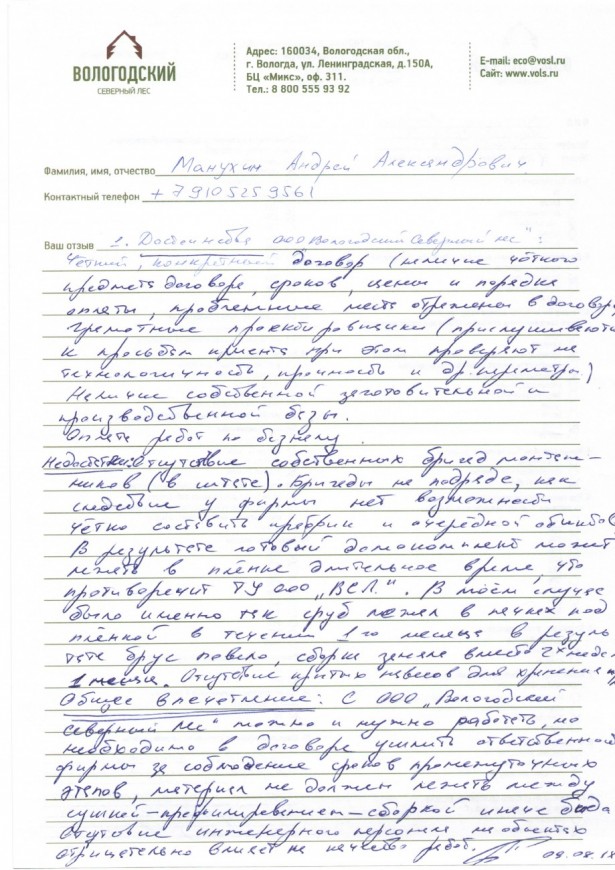 ВОЛОГОДСКИЙ
СЕВЕРНЫЙ ЛЕС
Адрес: 160034, Вологодская обл.,
г. Вологда, ул. Ленинградская, д.150А,
БЦ «Микс», оф. 311.
Тел.: 8 800 555 93 92
E-mail: eco@vosl.ru
Сайт: www.vols.ru
Фамилия, имя, отчество Манухин Андрей Александрович
Контактный телефон +79105259561
Ваш отзыв 1. Достоинства ООО "Вологодский Северный лес":
Чёткий, конкретный договор (наличие чёткого
предмета договора, сроков, цены и порядка
оплаты, проблемные места отражены в договоре
Грамотные проектировщики (прислушиваются
к просьбам клиента при этом проверяют на
технологичность, прочность и др. параметры)
Наличие собственной заготовительной и
производственной базы.
Оплата работ по безналу.
Недостатки: Отсутствие собственных бригад монтаж-
ников (в штате). Бригады на подряде, как
следствие у фирмы нет возможности
чётко составить график и очередной
В результате готовый домокомплект может
лежать в плёнке длительное время, что
противоречит ТУ ООО „ВСЛ". В моём случае
было именно так сруб лежал в пачках под
плёнкой в течении 1го месяца в резуль
тате брус повело, сборка заняла вместо 2х недель
1 месяц. Отсутствие крытых навесов для хранения
Общее впечатление: С ООО „Вологодский
Северный лес" можно и нужно работать, но
необходимо в договоре усилить ответственность
фирмы за соблюдение сроков промежуточных
этапов, материал не должен лежать между
сушкой-профилированием-сборкой иначе беда
Отсутствие инженерного персонала на объектах
отрицательно влияет на качество работ.